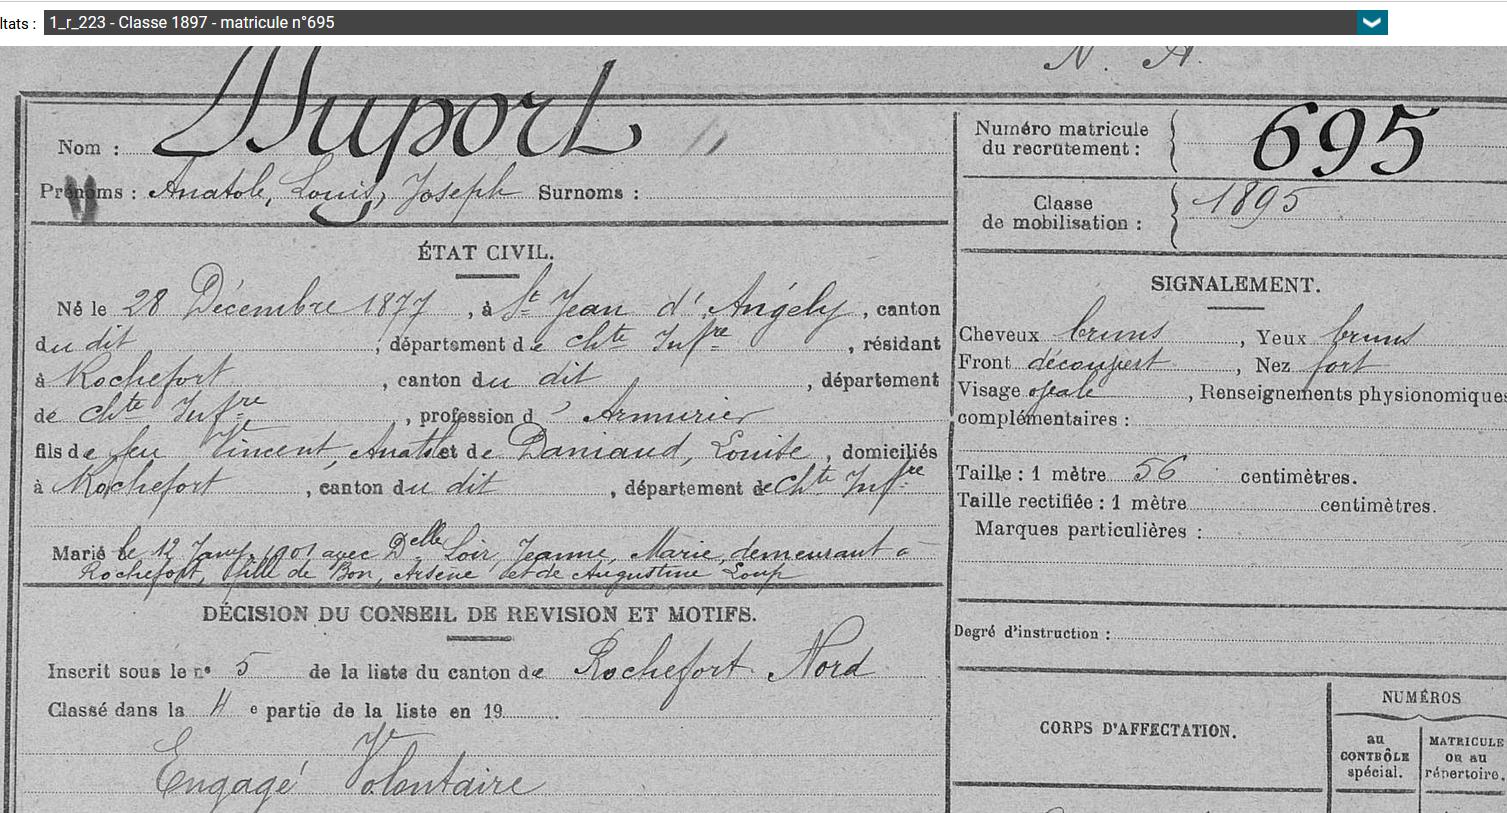 ltats : 1_r_223 - Classe 1897 - matricule n°695
N. A.
Nom : Duport
Prénoms : Anatole, Louis, Joseph Surnoms :
ÉTAT CIVIL.
Né le 28 Décembre 1877, à St Jean d'Angély, canton
du dit, département de Chte Infre, résidant
à Rochefort, canton du dit, département
de Chte Infre, profession d' Armurier
fils de feu Vincent, Anatole et de Daniaud, Louise, domiciliés
à Rochefort, canton du dit, département de Chte Infre
Marié le 12 Janv. 1901 avec Delle Loir, Jeanne, Marie, demeurant à
Rochefort, fille de Bon, Arsène et de Augustine Loup
DÉCISION DU CONSEIL DE REVISION ET MOTIFS.
Inscrit sous le n° 5 de la liste du canton de Rochefort Nord
Classé dans la 4 e partie de la liste en 19
Engagé Volontaire
Numéro matricule
du recrutement : 695
Classe
de mobilisation : 1895
SIGNALEMENT.
Cheveux bruns, Yeux bruns
Front découvert, Nez fort
Visage ovale, Renseignements physionomiques
complémentaires :
Taille : 1 mètre 56 centimètres.
Taille rectifiée : 1 mètre centimètres.
Marques particulières :
Degré d'instruction :
CORPS D'AFFECTATION.
NUMÉROS
au
CONTRÔLE
spécial.
MATRICULE
ou au
répertoire.